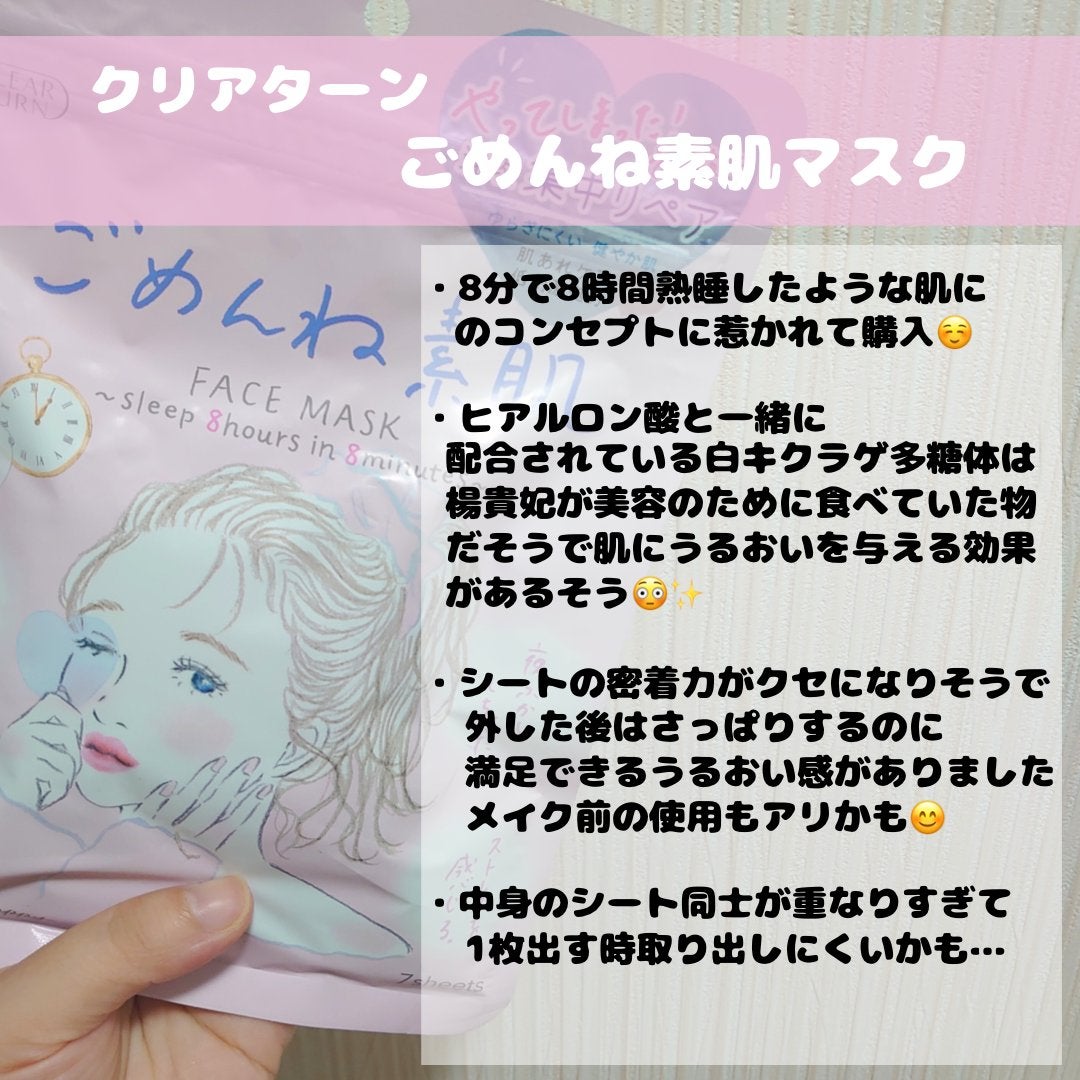 クリアターン
ごめんね素肌マスク
やってしまった!
集中リペア
ゆらぎにくい 健やか肌
肌あれ
ごめんね
素肌
FACE MASK
~sleep 8hours in 8minutes~
・8分で8時間熟睡したような肌に
のコンセプトに惹かれて購入☺️
・ヒアルロン酸と一緒に
配合されている白キクラゲ多糖体は
楊貴妃が美容のために食べていた物
だそうで肌にうるおいを与える効果
があるそう😳✨
・シートの密着力がクセになりそうで
外した後はさっぱりするのに
満足できるうるおい感がありました
メイク前の使用もアリかも😊
・中身のシート同士が重なりすぎて
1枚出す時取り出しにくいかも…
7sheets